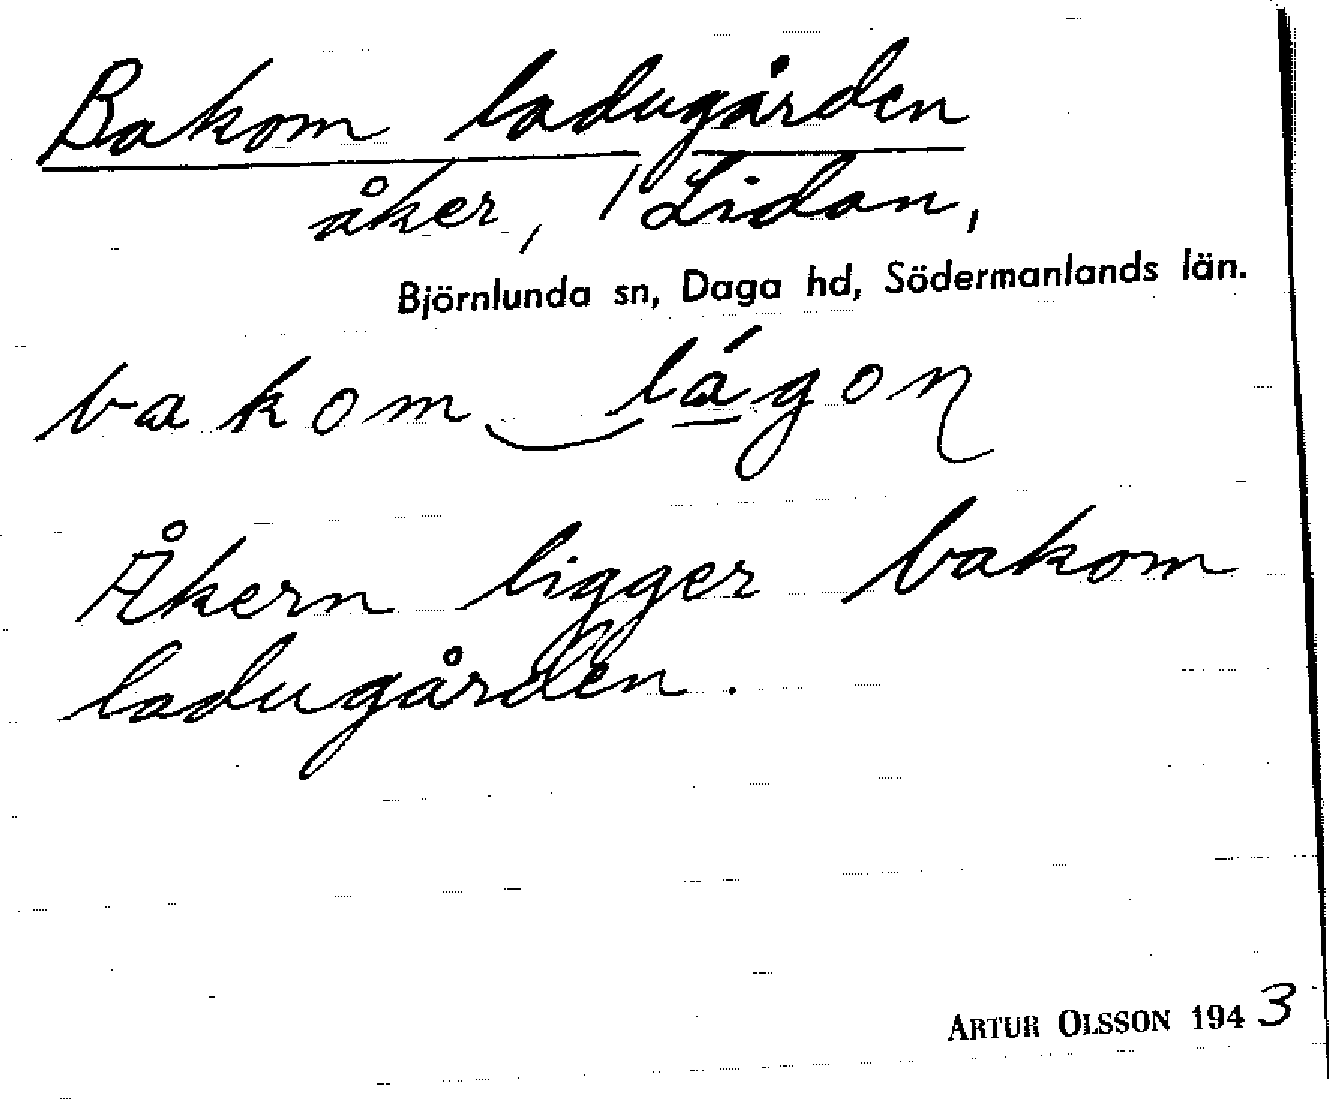 Bakom ladugården
åker, / Lidan,
Björnlunda sn, Daga hd, Södermanlands län.
bakom‿lágon
Åkern ligger bakom
ladugården.
ARTUR OLSSON 1943